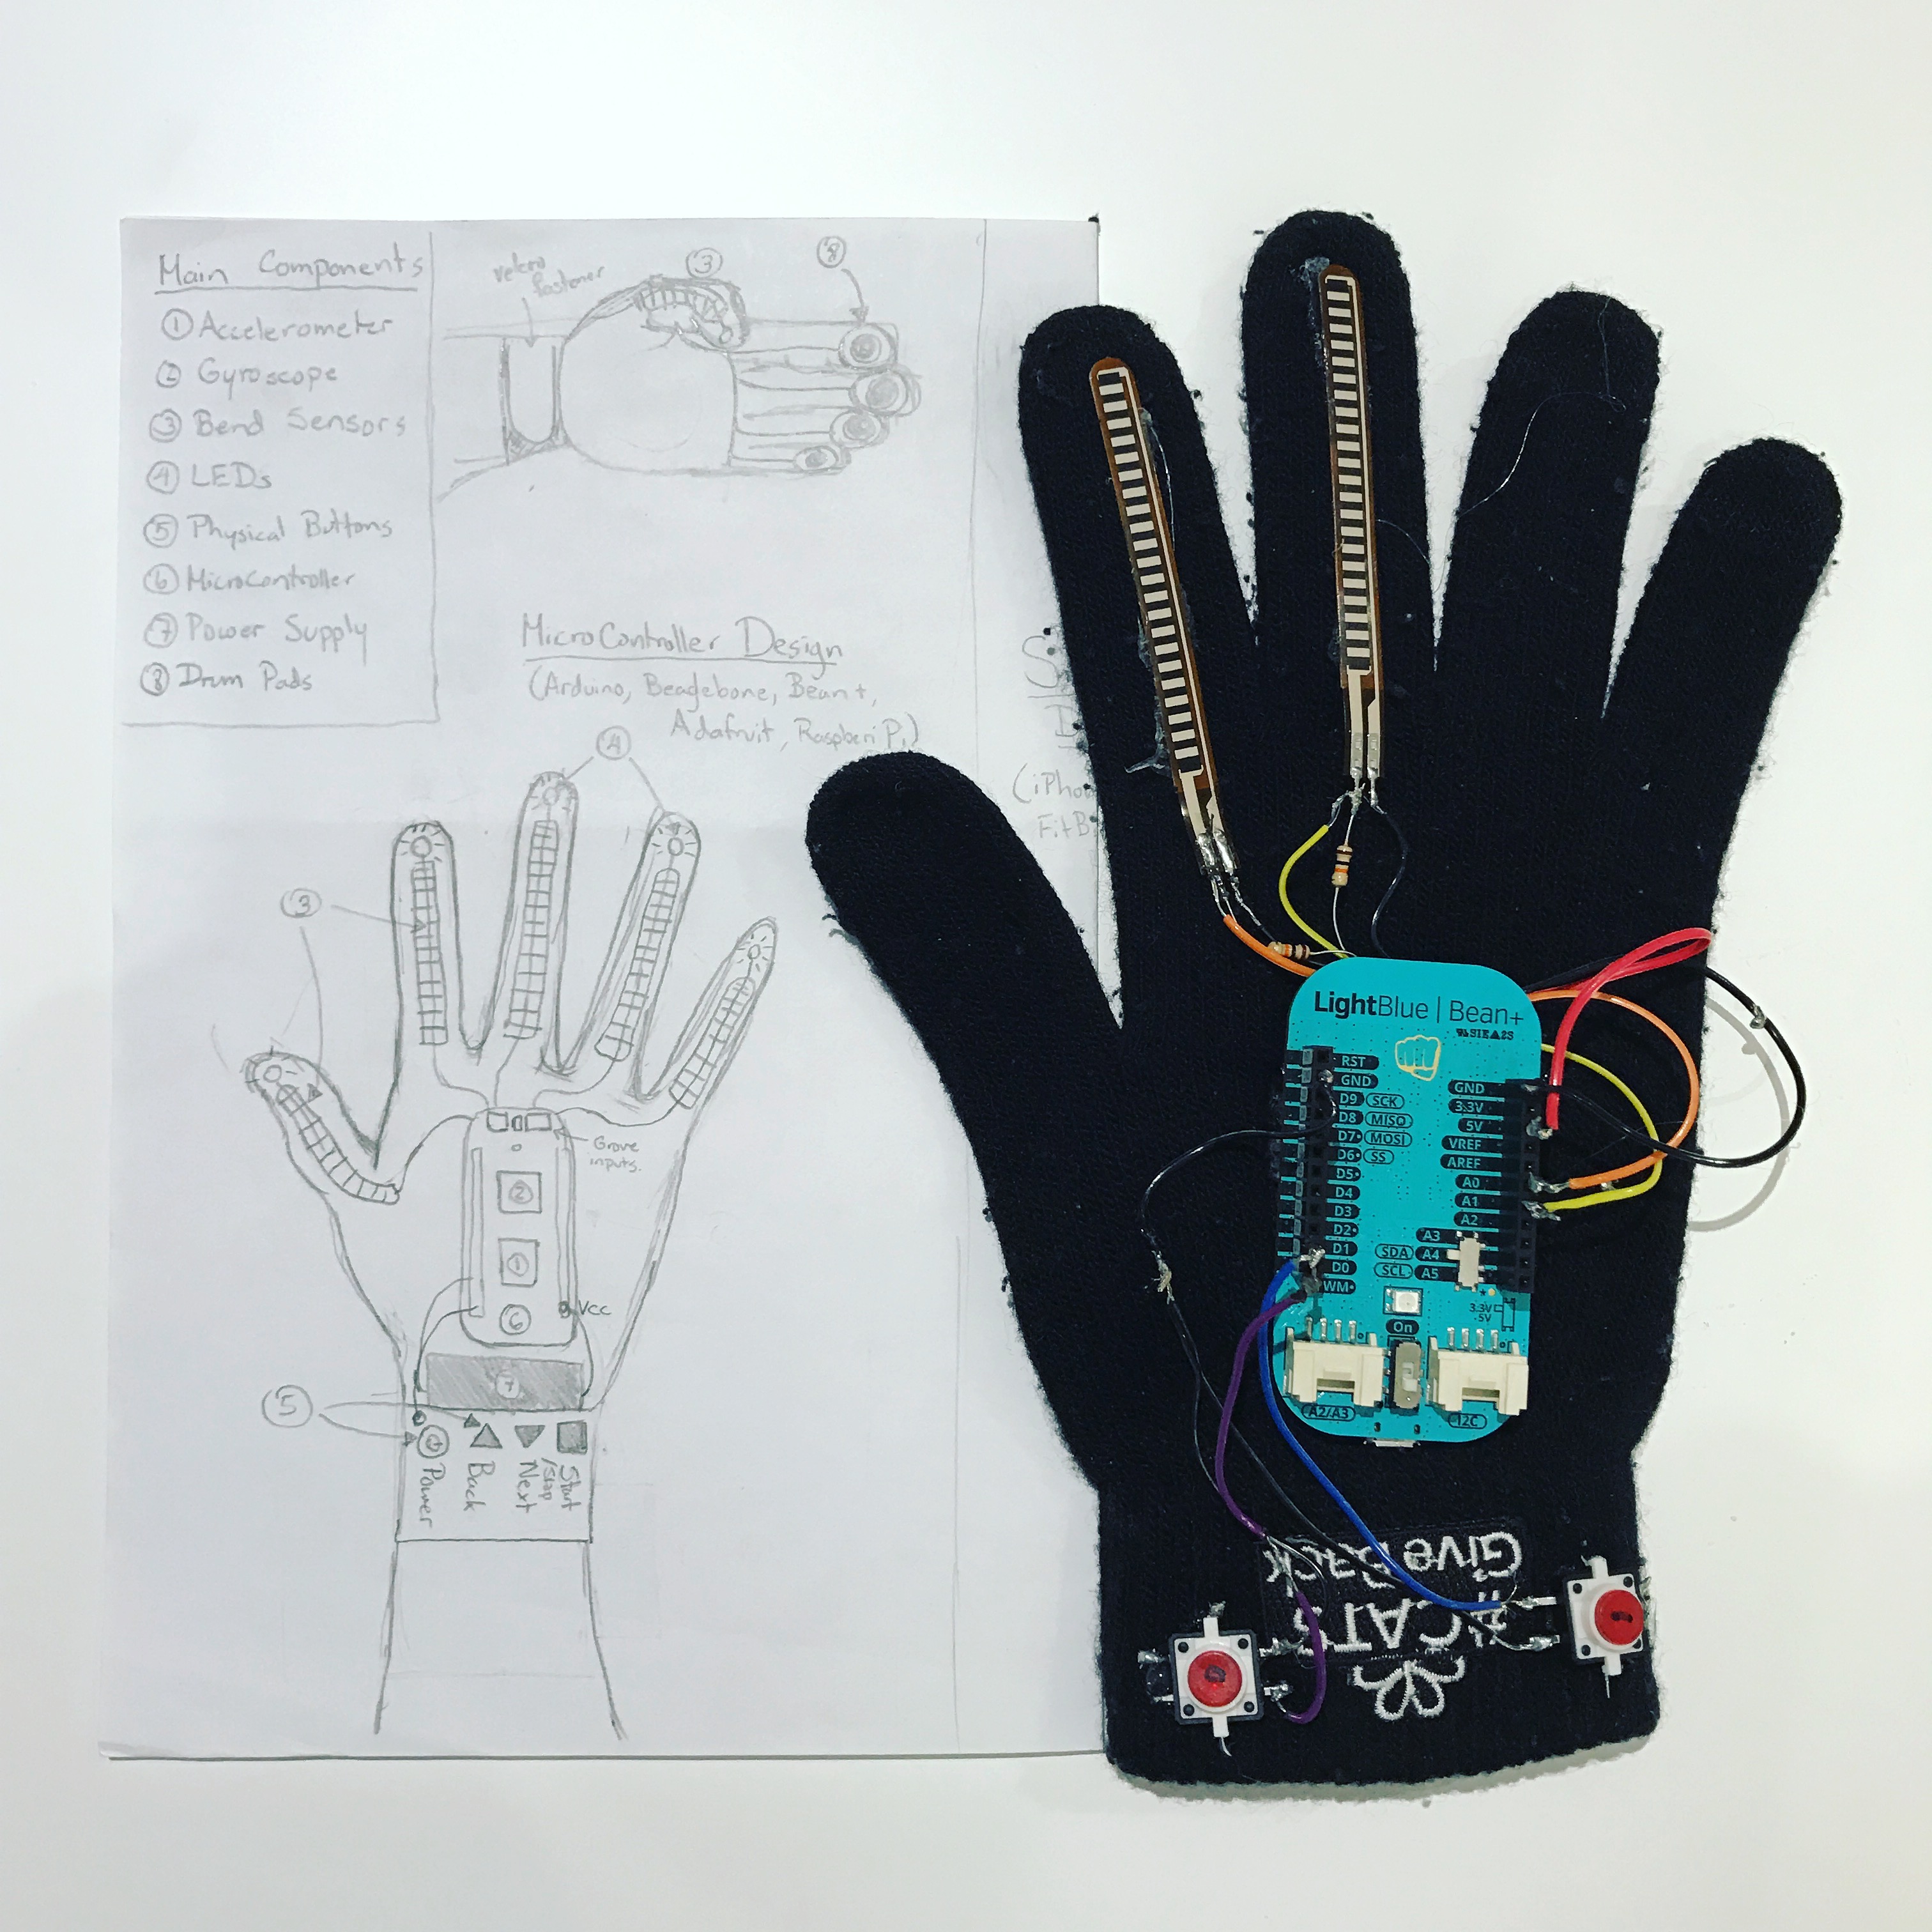 Main Components
① Accelerometer
② Gyroscope
③ Bend Sensors
④ LEDs
⑤ Physical Buttons
⑥ Microcontroller
⑦ Power Supply
⑧ Drum Pads
velcro
fastener
③
⑧
MicroController Design
(Arduino, Beaglebone, Bean+,
Adafruit, Raspberi Pi)
④
③
Grove
inputs.
②
①
⑥
VCC
⑦
⑤
Power
Back
Next
Start
/Stop
(iPho
FitB
LightBlue | Bean+
RST
GND
D9 SCK
D8 MISO
D7 MOSI
D6 SS
D5
D4
D3
D2
D1
D0
GND
3.3V
5V
VREF
AREF
A0
A1
A2
A3
SDA A4
SCL A5
3.3V
5V
On
A2/A3
I2C
#CATS
Give Back